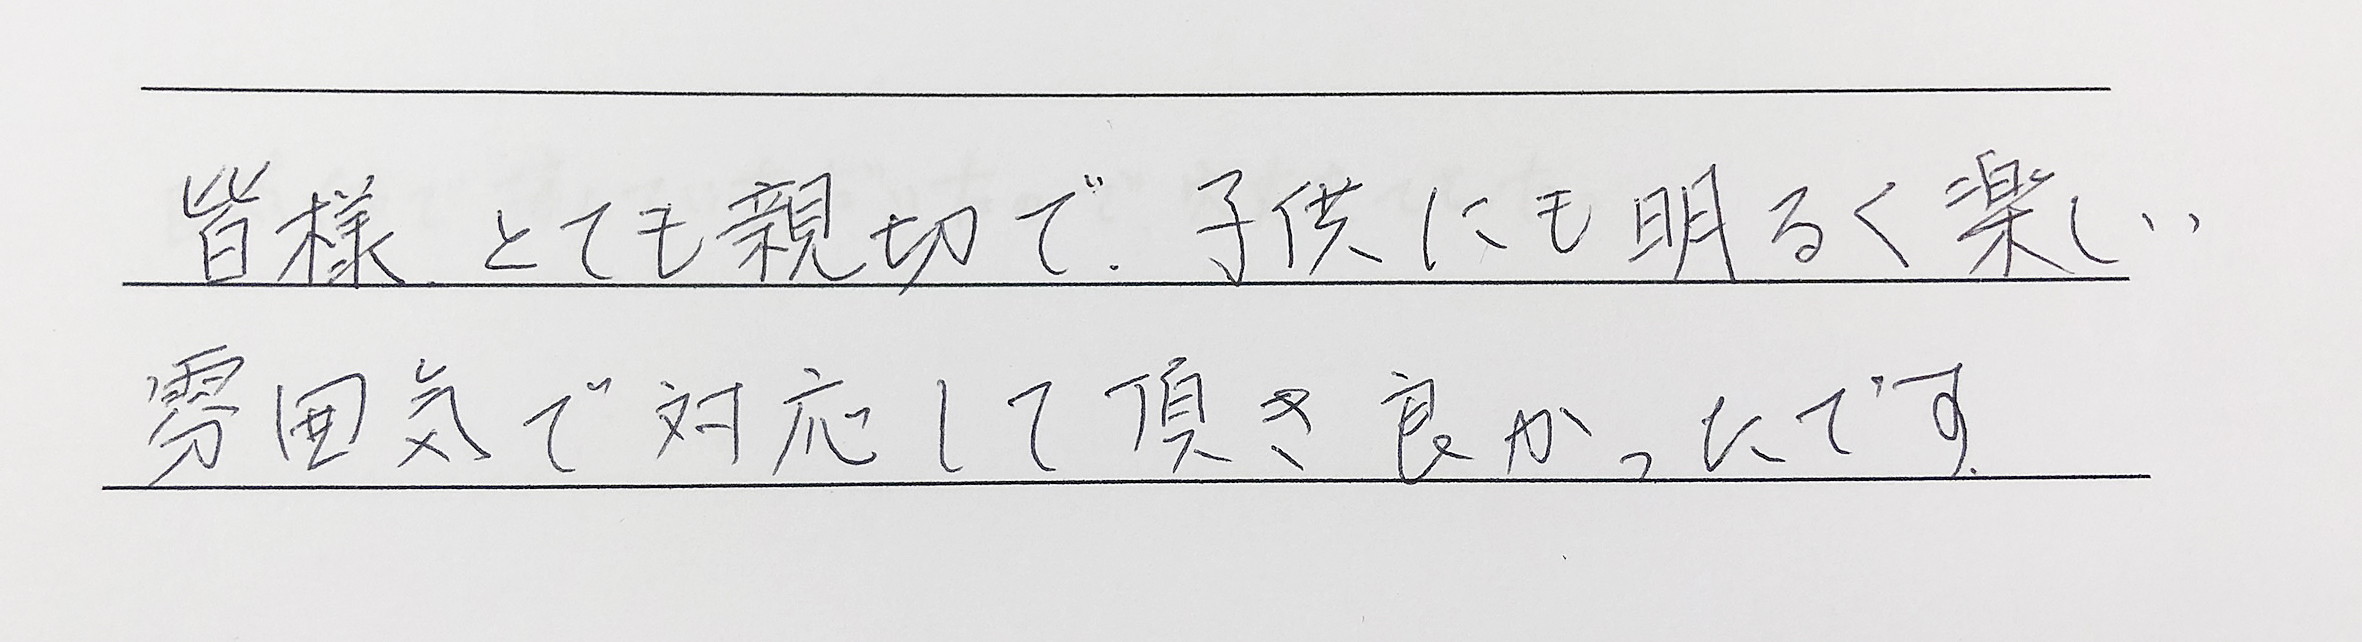 皆様、とても親切で、子供にも明るく楽しい
雰囲気で対応して頂き良かったです。